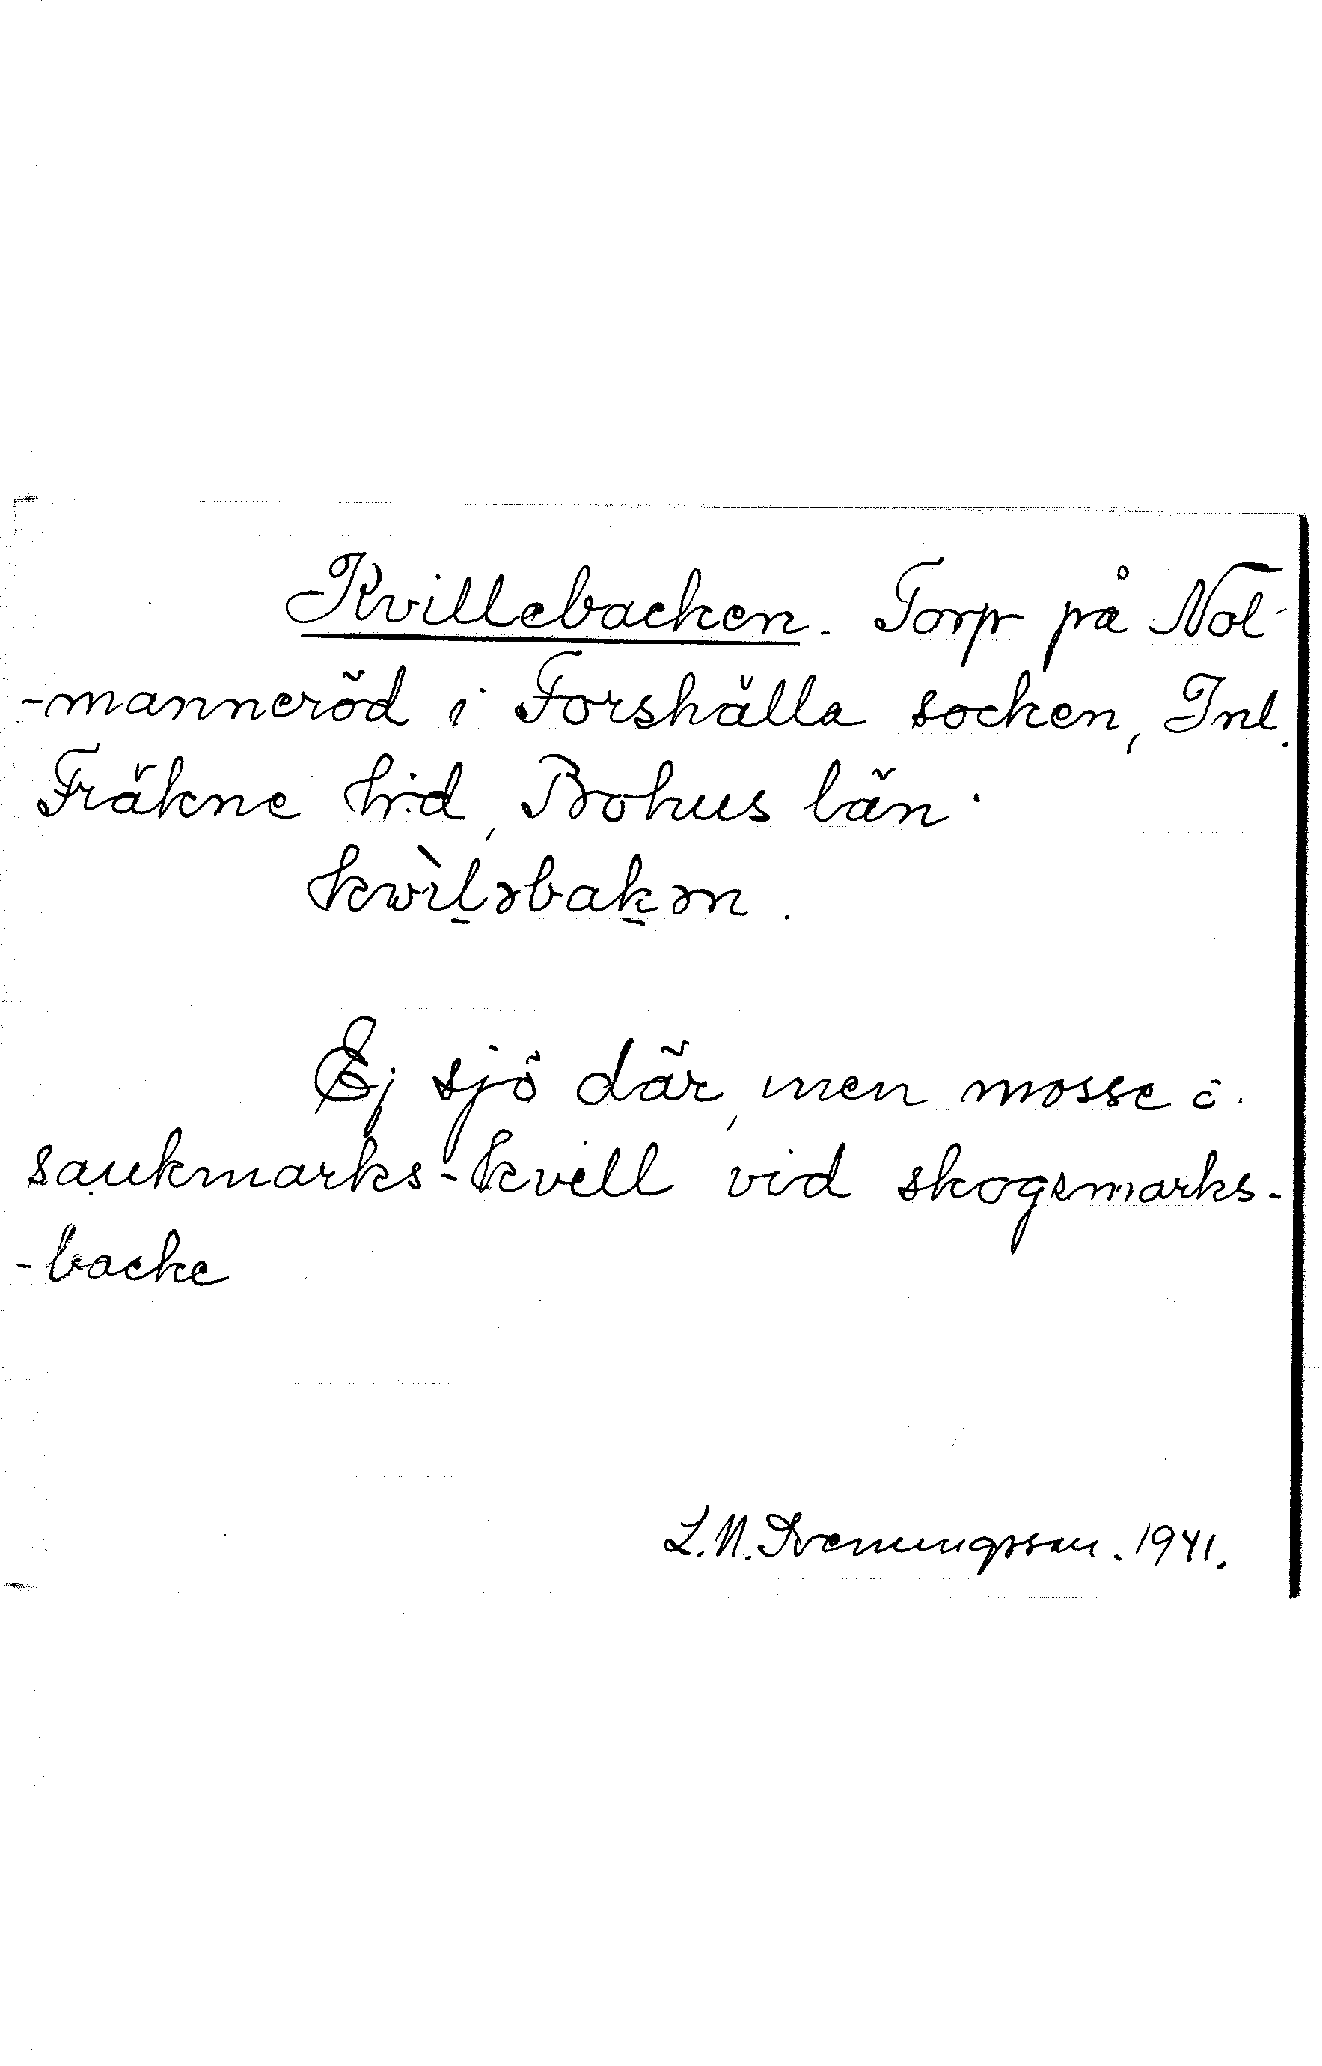 Kvillebacken. Torp på Nol-
-manneröd i Forshälla socken, Inl.
Fräkne h:d, Bohus län.
kwìl̠əbak̠ən.
Ej sjö där, men mosse i
saukmarks-kvill vid skogsmarks-
-backe
L.N. Svenungsson. 1941.